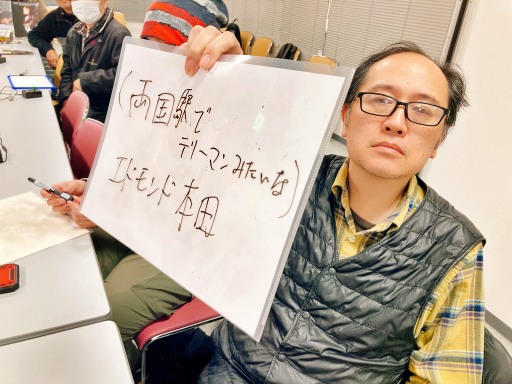 (両国駅で
テリーマンみたいな)
エドモンド本田